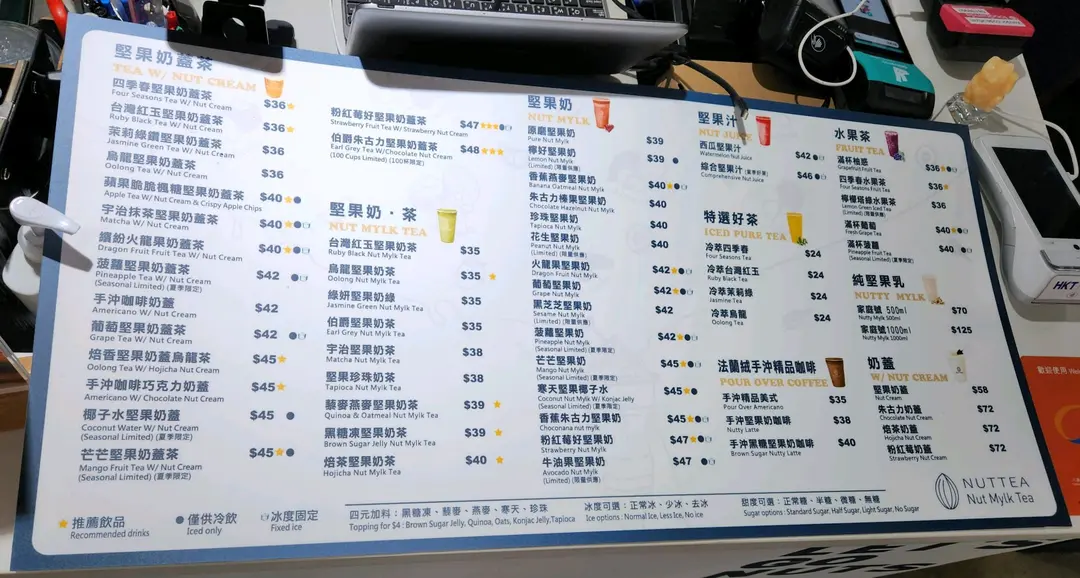 堅果奶蓋茶
TEA W/ NUT CREAM
四季春堅果奶蓋茶 $36
Four Seasons Tea W/ Nut Cream
台灣紅玉堅果奶蓋茶 $36
Ruby Black Tea W/ Nut Cream
茉莉綠鑽堅果奶蓋茶 $36
Jasmine Green Tea W/ Nut Cream
烏龍堅果奶蓋茶 $36
Oolong Tea W/ Nut Cream
蘋果脆脆楓糖堅果奶蓋茶 $40
Apple Tea W/ Nut Cream & Crispy Apple Chips
宇治抹茶堅果奶蓋茶 $40
Matcha W/ Nut Cream
繽紛火龍果堅果奶蓋茶 $40
Dragon Fruit Fruit Tea W/ Nut Cream
菠蘿堅果奶蓋茶 $42
Pineapple Tea W/ Nut Cream
(Seasonal Limited) (夏季限定)
手沖咖啡奶蓋 $42
Americano W/ Nut Cream
葡萄堅果奶蓋茶 $42
Grape Tea W/ Nut Cream
焙香堅果奶蓋烏龍茶 $45
Oolong Tea W/ Hojicha Nut Cream
手沖咖啡巧克力奶蓋 $45
Americano W/ Chocolate Nut Cream
椰子水堅果奶蓋 $45
Coconut Water W/ Nut Cream
(Seasonal Limited) (夏季限定)
芒芒堅果奶蓋茶 $45
Mango Fruit Tea W/ Nut Cream
(Seasonal Limited) (夏季限定)
粉紅莓好堅果奶蓋茶 $47
Strawberry Fruit Tea W/ Strawberry Nut Cream
伯爵朱古力堅果奶蓋茶 $48
Earl Grey Tea W/Chocolate Nut Cream
(100 Cups Limited) (100杯限定)
堅果奶・茶
NUT MYLK TEA
台灣紅玉堅果奶茶 $35
Ruby Black Nut Mylk Tea
烏龍堅果奶茶 $35
Oolong Nut Mylk Tea
綠妍堅果奶綠 $35
Jasmine Green Nut Mylk Tea
伯爵堅果奶茶 $35
Earl Grey Nut Mylk Tea
宇治堅果奶茶 $38
Matcha Nut Mylk Tea
堅果珍珠奶茶 $38
Tapioca Nut Mylk Tea
藜麥燕麥堅果奶茶 $39
Quinoa & Oatmeal Nut Mylk Tea
黑糖凍堅果奶茶 $39
Brown Sugar Jelly Nut Mylk Tea
焙茶堅果奶茶 $40
Hojicha Nut Mylk Tea
堅果奶
NUT MYLK
原磨堅果奶 $39
Pure Nut Mylk
檸好堅果奶 $39
Lemon Nut Mylk
(Limited) (限量供應)
香蕉燕麥堅果奶 $40
Banana Oatmeal Nut Mylk
朱古力榛果堅果奶 $40
Chocolate Hazelnut Nut Mylk
珍珠堅果奶 $40
Tapioca Nut Mylk
花生堅果奶 $40
Peanut Nut Mylk
(Limited) (限量供應)
火龍果堅果奶 $42
Dragon Fruit Nut Mylk
葡萄堅果奶 $42
Grape Nut Mylk
黑芝芝堅果奶 $42
Sesame Nut Mylk
(Limited) (限量供應)
菠蘿堅果奶 $42
Pineapple Nut Mylk
(Seasonal Limited) (夏季限定)
芒芒堅果奶 $45
Mango Nut Mylk
(Seasonal Limited) (夏季限定)
寒天堅果椰子水 $45
Coconut Nut Mylk W/ Konjac Jelly
(Seasonal Limited) (夏季限定)
香蕉朱古力堅果奶 $45
Choconana nut Mylk
粉紅莓好堅果奶 $47
Strawberry Nut Mylk
牛油果堅果奶 $47
Avocado Nut Mylk
(Limited) (限量供應)
堅果汁
NUT JUICE
西瓜堅果汁 $42
Watermelon Nut Juice
綜合堅果汁 $46
Comprehensive Nut Juice
特選好茶
ICED PURE TEA
冷萃四季春 $24
Four Seasons Tea
冷萃台灣紅玉 $24
Ruby Black Tea
冷萃茉莉綠 $24
Jasmine Tea
冷萃烏龍 $24
Oolong Tea
法蘭絨手沖精品咖啡
POUR OVER COFFEE
手沖精品美式 $35
Pour Over Americano
手沖堅果奶咖啡 $38
Nutty Latte
手沖黑糖堅果奶咖啡 $40
Brown Sugar Nutty Latte
水果茶
FRUIT TEA
滿杯柚惑 $36
Grapefruit Fruit Tea
四季春水果茶 $36
Four Seasons Fruit Tea
檸檬塔綠水果茶 $36
Lemon Green Iced Tea
(Limited) (限量供應)
滿杯葡萄 $40
Fresh Grape Tea
滿杯菠蘿 $40
Pineapple Fruit Tea
(Seasonal Limited) (夏季限定)
純堅果乳
NUTTY MYLK
家庭號 500ml $70
Nutty Mylk 500ml
家庭號1000ml $125
Nutty Mylk 1000ml
奶蓋
W/ NUT CREAM
堅果奶蓋 $58
Nut Cream
朱古力奶蓋 $72
Chocolate Nut Cream
焙茶奶蓋 $72
Hojicha Nut Cream
粉紅莓奶蓋 $72
Strawberry Nut Cream
★推薦飲品
Recommended drinks
●僅供冷飲
Iced only
冰度固定
Fixed ice
四元加料：黑糖凍・藜麥・燕麥・寒天・珍珠
Topping for $4 : Brown Sugar Jelly, Quinoa, Oats, Konjac Jelly,Tapioca
冰度可選：正常冰・少冰・去冰
Ice options : Normal Ice, Less Ice, No ice
甜度可選：正常糖・半糖・微糖・無糖
Sugar options : Standard Sugar, Half Sugar, Light Sugar, No Sugar
NUTTEA
Nut Mylk Tea
HKT
歡迎使用